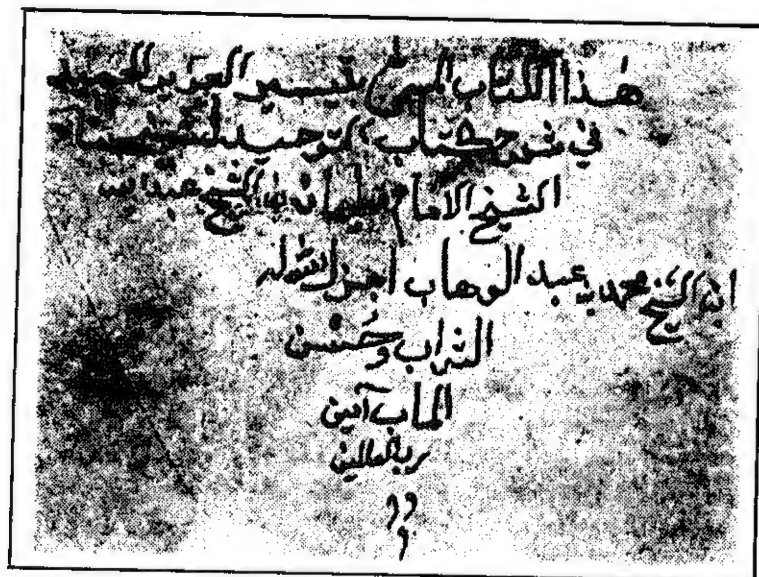 هذا الكتاب المسمى بتيسير العزيز الحميد
في شرح كتاب التوحيد
الشيخ الامام سليمان بن الشيخ عبد الله
ابن الشيخ محمد بن عبد الوهاب اجزل الله له
الثواب وحسن
المآب آمين
رب العالمين